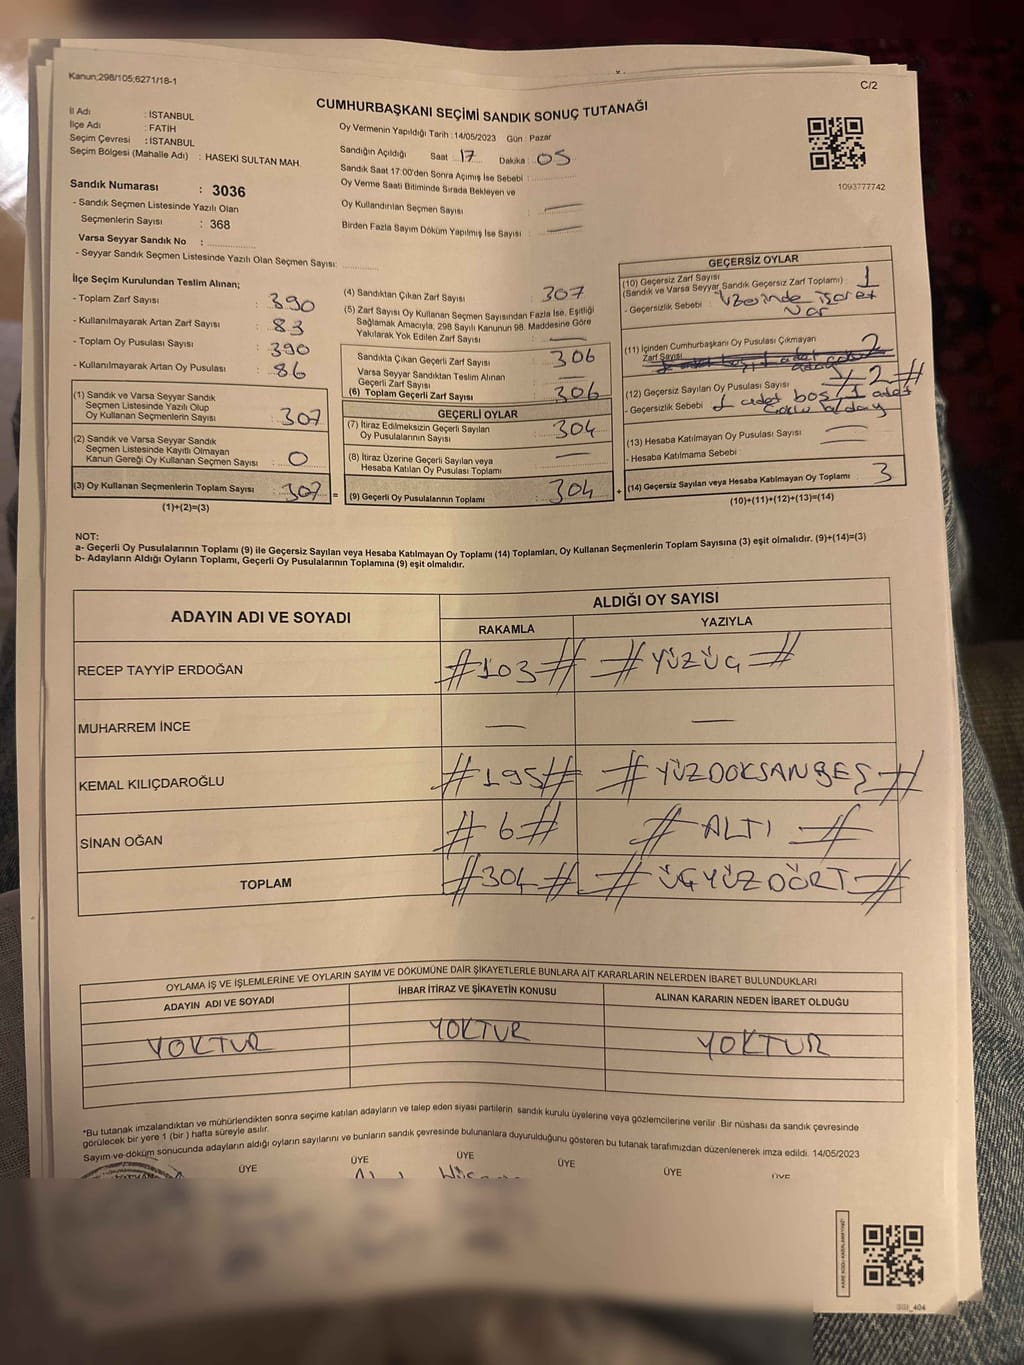 Kanun;298/105;6271/18-1
C/2
CUMHURBAŞKANI SEÇİMİ SANDIK SONUÇ TUTANAĞI
İl Adı : İSTANBUL
İlçe Adı : FATİH
Seçim Çevresi : İSTANBUL
Seçim Bölgesi (Mahalle Adı) : HASEKİ SULTAN MAH.
Sandık Numarası : 3036
- Sandık Seçmen Listesinde Yazılı Olan
Seçmenlerin Sayısı : 368
Varsa Seyyar Sandık No :
- Seyyar Sandık Seçmen Listesinde Yazılı Olan Seçmen Sayısı:
Oy Vermenin Yapıldığı Tarih : 14/05/2023 Gün : Pazar
Sandığın Açıldığı Saat : 17 Dakika : 05
Sandık Saat 17:00'den Sonra Açımış İse Sebebi :
Oy Verme Saati Bitiminde Sırada Bekleyen ve
Oy Kullandırılan Seçmen Sayısı : —
Birden Fazla Sayım Döküm Yapılmış İse Sayısı : —
1093777742
İlçe Seçim Kurulundan Teslim Alınan;
- Toplam Zarf Sayısı : 390
- Kullanılmayarak Artan Zarf Sayısı : 83
- Toplam Oy Pusulası Sayısı : 390
- Kullanılmayarak Artan Oy Pusulası : 86
(1) Sandık ve Varsa Seyyar Sandık
Seçmen Listesinde Yazılı Olup
Oy Kullanan Seçmenlerin Sayısı : 307
(2) Sandık ve Varsa Seyyar Sandık
Seçmen Listesinde Kayıtlı Olmayan
Kanun Gereği Oy Kullanan Seçmen Sayısı : 0
(3) Oy Kullanan Seçmenlerin Toplam Sayısı : 307 =
(1)+(2)=(3)
(4) Sandıktan Çıkan Zarf Sayısı : 307
(5) Zarf Sayısı Oy Kullanan Seçmen Sayısından Fazla İse, Eşitliği
Sağlamak Amacıyla; 298 Sayılı Kanunun 98. Maddesine Göre
Yakılarak Yok Edilen Zarf Sayısı : —
Sandıkta Çıkan Geçerli Zarf Sayısı : 306
Varsa Seyyar Sandıktan Teslim Alınan
Geçerli Zarf Sayısı : —
(6) Toplam Geçerli Zarf Sayısı : 306
GEÇERLİ OYLAR
(7) İtiraz Edilmeksizin Geçerli Sayılan
Oy Pusulalarının Sayısı : 304
(8) İtiraz Üzerine Geçerli Sayılan veya
Hesaba Katılan Oy Pusulası Toplamı : —
(9) Geçerli Oy Pusulalarının Toplamı : 304 +
GEÇERSİZ OYLAR
(10) Geçersiz Zarf Sayısı
(Sandık ve Varsa Seyyar Sandık Geçersiz Zarf Toplamı) : 1
- Geçersizlik Sebebi : Üzerinde işaret
var
(11) İçinden Cumhurbaşkanı Oy Pusulası Çıkmayan
Zarf Sayısı
(12) Geçersiz Sayılan Oy Pusulası Sayısı : # 2 #
- Geçersizlik Sebebi : 1 adet boş, 1 adet
çoklu aday
(13) Hesaba Katılmayan Oy Pusulası Sayısı : —
- Hesaba Katılmama Sebebi : —
(14) Geçersiz Sayılan veya Hesaba Katılmayan Oy Toplamı : 3
(10)+(11)+(12)+(13)=(14)
NOT:
a- Geçerli Oy Pusulalarının Toplamı (9) ile Geçersiz Sayılan veya Hesaba Katılmayan Oy Toplamı (14) Toplamları, Oy Kullanan Seçmenlerin Toplam Sayısına (3) eşit olmalıdır. (9)+(14)=(3)
b- Adayların Aldığı Oyların Toplamı, Geçerli Oy Pusulalarının Toplamına (9) eşit olmalıdır.
ADAYIN ADI VE SOYADI
ALDIĞI OY SAYISI
RAKAMLA YAZIYLA
RECEP TAYYİP ERDOĞAN #103# #YÜZÜÇ#
MUHARREM İNCE — —
KEMAL KILIÇDAROĞLU #195# #YÜZDOKSANBEŞ#
SİNAN OĞAN #6# #ALTI#
TOPLAM #304# #ÜÇYÜZDÖRT#
OYLAMA İŞ VE İŞLEMLERİNE VE OYLARIN SAYIM VE DÖKÜMÜNE DAİR ŞİKAYETLERLE BUNLARA AİT KARARLARIN NELERDEN İBARET BULUNDUKLARI
ADAYIN ADI VE SOYADI İHBAR İTİRAZ VE ŞİKAYETİN KONUSU ALINAN KARARIN NEDEN İBARET OLDUĞU
YOKTUR YOKTUR YOKTUR
*Bu tutanak imzalandıktan ve mühürlendikten sonra seçime katılan adayların ve talep eden siyasi partilerin sandık kurulu üyelerine veya gözlemcilerine verilir. Bir nüshası da sandık çevresinde
görülecek bir yere 1 (bir) hafta süreyle asılır.
Sayım ve döküm sonucunda adayların aldığı oyların sayılarını ve bunların sandık çevresinde bulunanlara duyurulduğunu gösteren bu tutanak tarafımızdan düzenlenerek imza edildi. 14/05/2023
ÜYE ÜYE ÜYE ÜYE ÜYE ÜYE